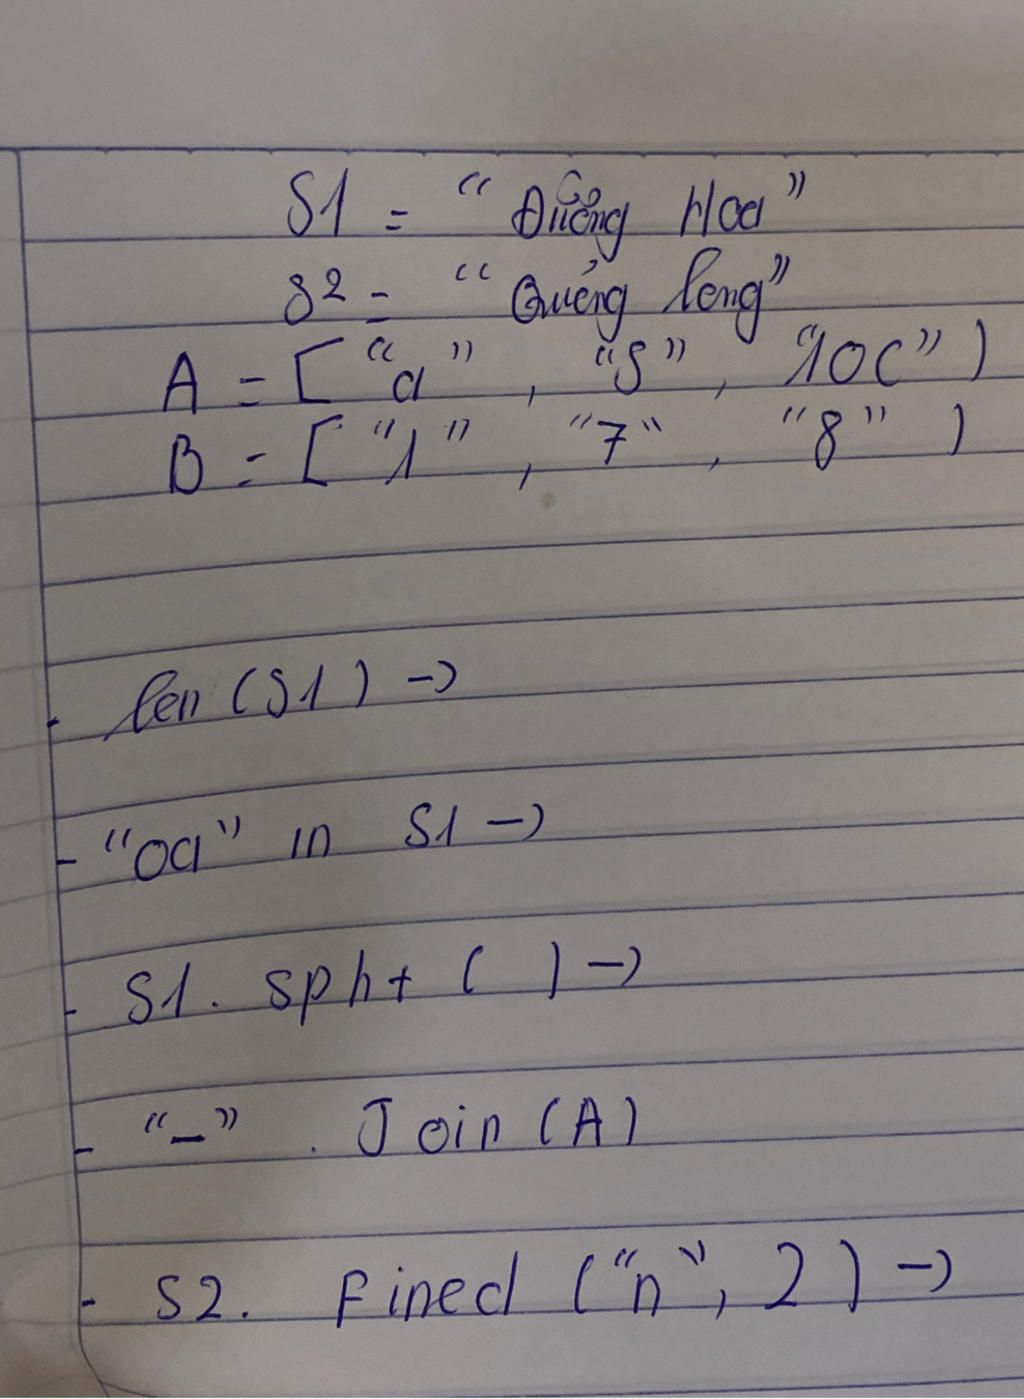 S1 = "Đường Hoa"
S2 = "Quảng long"
A = ["a", "5", "10C")
B = ["1", "7", "8")
- len (S1) ->
- "oa" in S1 ->
- S1. split ( ) ->
- "-" . Join (A)
- S2. Fined ("n", 2) ->